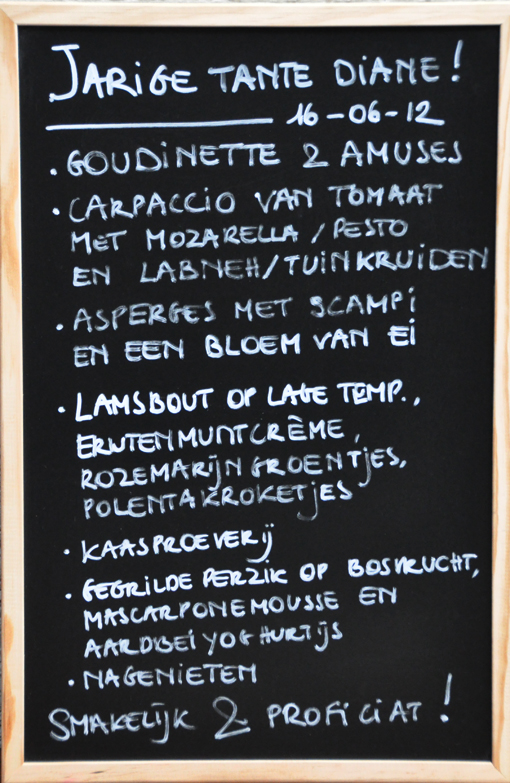 JARIGE TANTE DIANE!
16-06-12
• GOUDINETTE & AMUSES
• CARPACCIO VAN TOMAAT
MET MOZARELLA / PESTO
EN LABNEH/TUINKRUIDEN
• ASPERGES MET SCAMPI
EN EEN BLOEM VAN EI
• LAMSBOUT OP LAGE TEMP.,
ERWTENMUNTCRÈME,
ROZEMARIJNGROENTJES,
POLENTAKROKETJES
• KAASPROEVERIJ
• GEGRILDE PERZIK OP BOSVRUCHT,
MASCARPONEMOUSSE EN
AARDBEIYOGHURTIJS
• NAGENIETEN
SMAKELIJK & PROFICIAT!